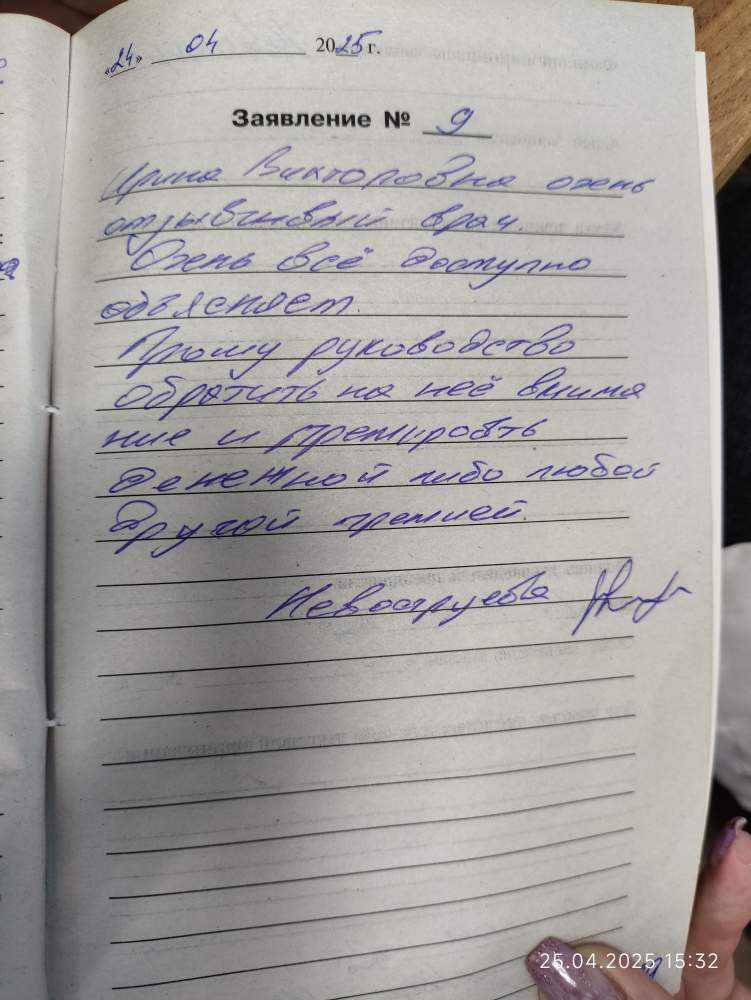 «24» 04 2025 г.
Заявление № 9
Ирина Викторовна очень
отзывчивый врач.
Очень всё доступно
одъясняет.
Прошу руководство
обратить на неё внима
ние и премировать
денежной либо любой
другой премией.
Невоструева
25.04.2025 15:32